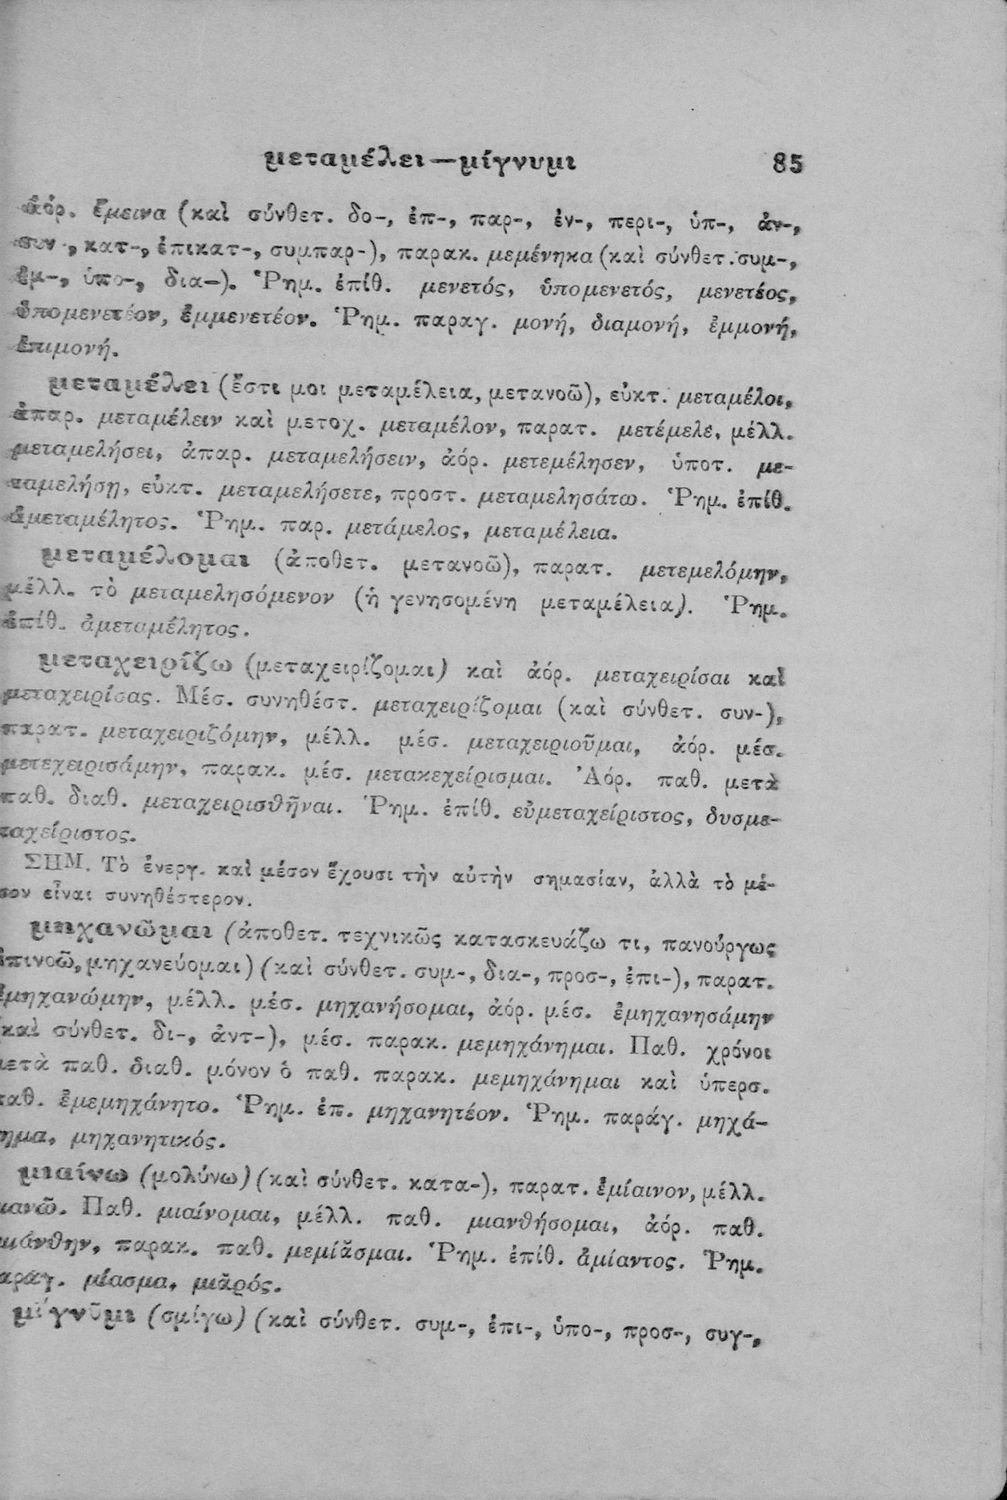 μεταμέλει—μίγνυμι 85
ἀόρ. ἔμεινα (καὶ σύνθετ. δο-, ἐπ-, παρ-, ἐν-, περι-, ὑπ-, ἀν-,
συν-, κατ-, ἐπικατ-, συμπαρ-), παρακ. μεμένηκα (καὶ σύνθετ. συμ-,
ἐμ-, ὑπο-, δια-). Ῥημ. ἐπίθ. μενετός, ὑπομενετός, μενετέος,
ὑπομενετέον, ἐμμενετέον. Ῥημ. παραγ. μονή, διαμονή, ἐμμονή,
ἐπιμονή.
μεταμέλει (ἔστι μοι μεταμέλεια, μετανοῶ), εὐκτ. μεταμέλοι,
ἀπαρ. μεταμέλειν καὶ μετοχ. μεταμέλον, παρατ. μετέμελε, μέλλ.
μεταμελήσει, ἀπαρ. μεταμελήσειν, ἀόρ. μετεμέλησεν, ὑποτ. με-
ταμελήσῃ, εὐκτ. μεταμελήσετε, προστ. μεταμελησάτω. Ῥημ. ἐπίθ.
ἀμεταμέλητος. Ῥημ. παρ. μετάμελος, μεταμέλεια.
μεταμέλομαι (ἀποθετ. μετανοῶ), παρατ. μετεμελόμην,
μέλλ. τὸ μεταμελησόμενον (ἡ γενησομένη μεταμέλεια). Ῥημ.
ἐπίθ. ἀμεταμέλητος.
μεταχειρῐζω (μεταχειρίζομαι) καὶ ἀόρ. μεταχειρίσαι καὶ
μεταχειρίσας. Μέσ. συνηθέστ. μεταχειρίζομαι (καὶ σύνθετ. συν-),
παρατ. μεταχειριζόμην, μέλλ. μέσ. μεταχειριοῦμαι, ἀόρ. μέσ.
μετεχειρισάμην, παρακ. μέσ. μετακεχείρισμαι. Ἀόρ. παθ. μετὰ
παθ. διαθ. μεταχειρισθῆναι. Ῥημ. ἐπίθ. εὐμεταχείριστος, δυσμε-
ταχείριστος.
ΣΗΜ. Τὸ ἐνεργ. καὶ μέσον ἔχουσι τὴν αὐτὴν σημασίαν, ἀλλὰ τὸ μέ-
σον εἶναι συνηθέστερον.
μηχανῶμαι (ἀποθετ. τεχνικῶς κατασκευάζω τι, πανούργως
ἐπινοῶ, μηχανεύομαι) (καὶ σύνθετ. συμ-, δια-, προσ-, ἐπι-), παρατ.
ἐμηχανώμην, μέλλ. μέσ. μηχανήσομαι, ἀόρ. μέσ. ἐμηχανησάμην
(καὶ σύνθετ. δι-, ἀντ-), μέσ. παρακ. μεμηχάνημαι. Παθ. χρόνοι
μετὰ παθ. διαθ. μόνον ὁ παθ. παρακ. μεμηχάνημαι καὶ ὑπερσ.
παθ. ἐμεμηχάνητο. Ῥημ. ἐπ. μηχανητέον. Ῥημ. παράγ. μηχά-
νημα, μηχανητικός.
μιαίνω (μολύνω) (καὶ σύνθετ. κατα-), παρατ. ἐμίαινον, μέλλ.
μιανῶ. Παθ. μιαίνομαι, μέλλ. παθ. μιανθήσομαι, ἀόρ. παθ.
ἐμιάνθην, παρακ. παθ. μεμίᾰσμαι. Ῥημ. ἐπίθ. ἀμίαντος. Ῥημ.
παράγ. μίασμα, μιᾰρός.
μίγνῡμι (σμίγω) (καὶ σύνθετ. συμ-, ἐπι-, ὑπο-, προσ-, συγ-,